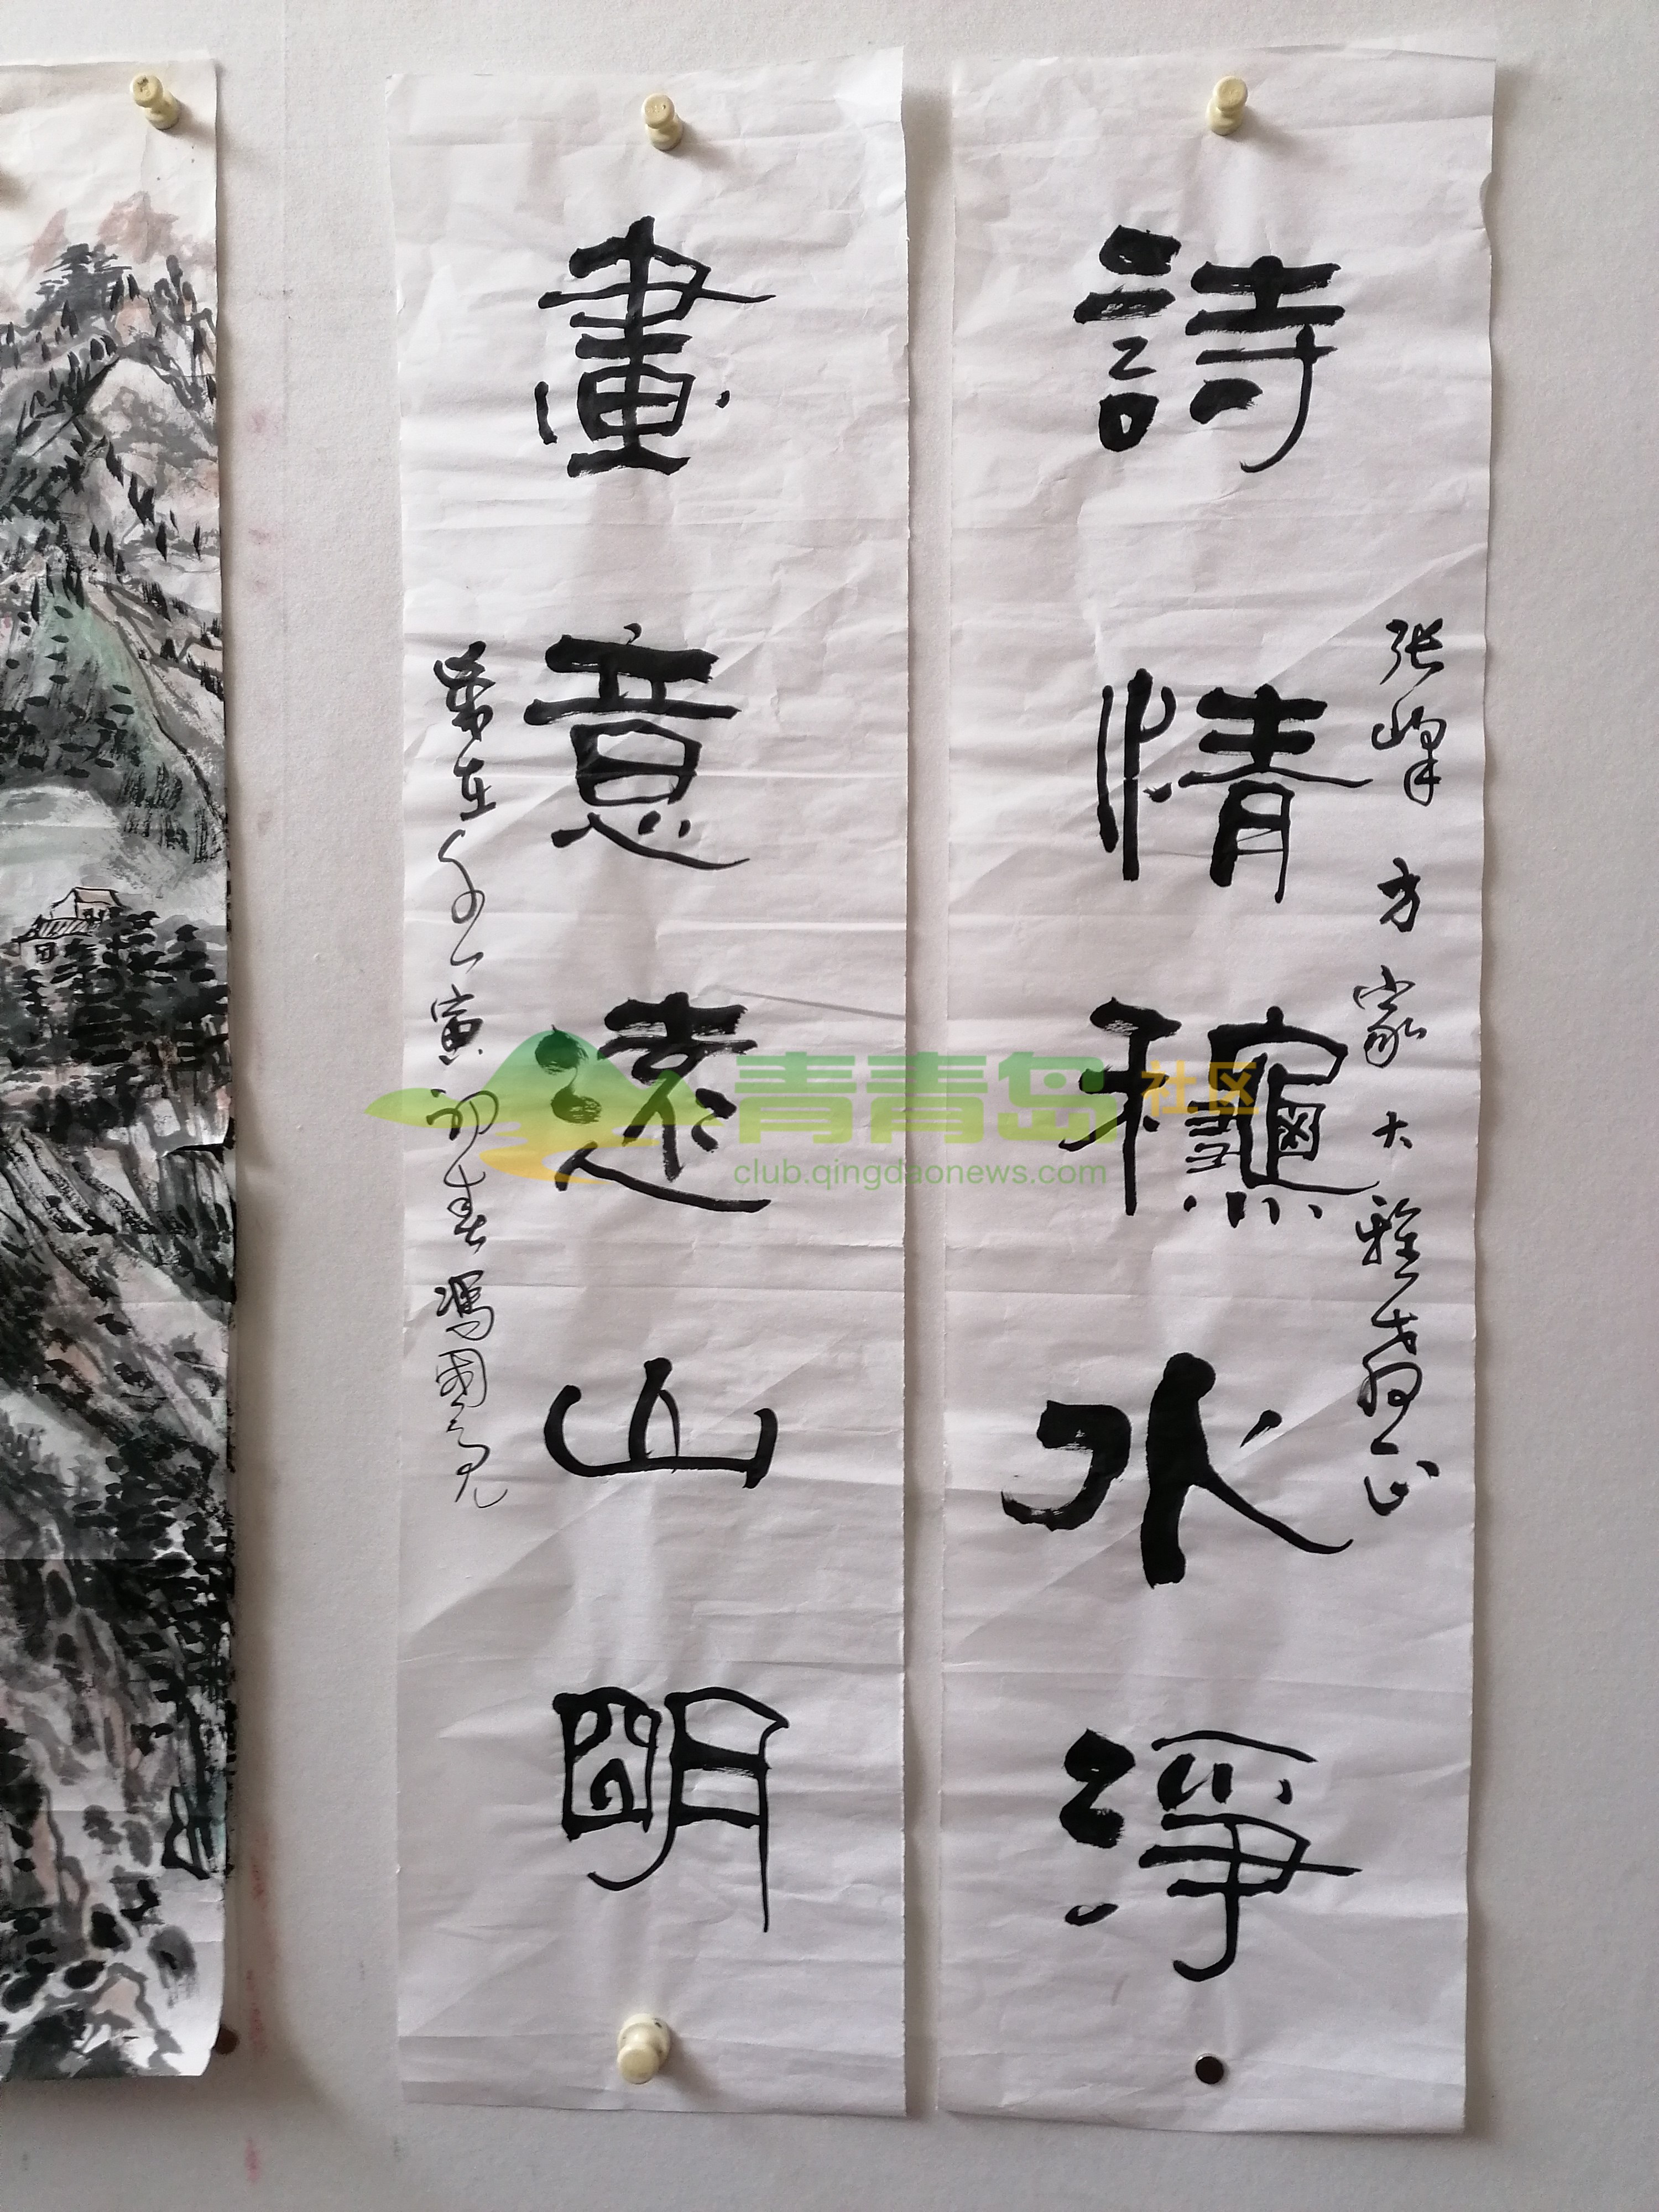 詩情龝水淨
张峰方家大雅教正
畫意遠山明
岁在壬寅初春馮國亮
青青岛社区
club.qingdaonews.com